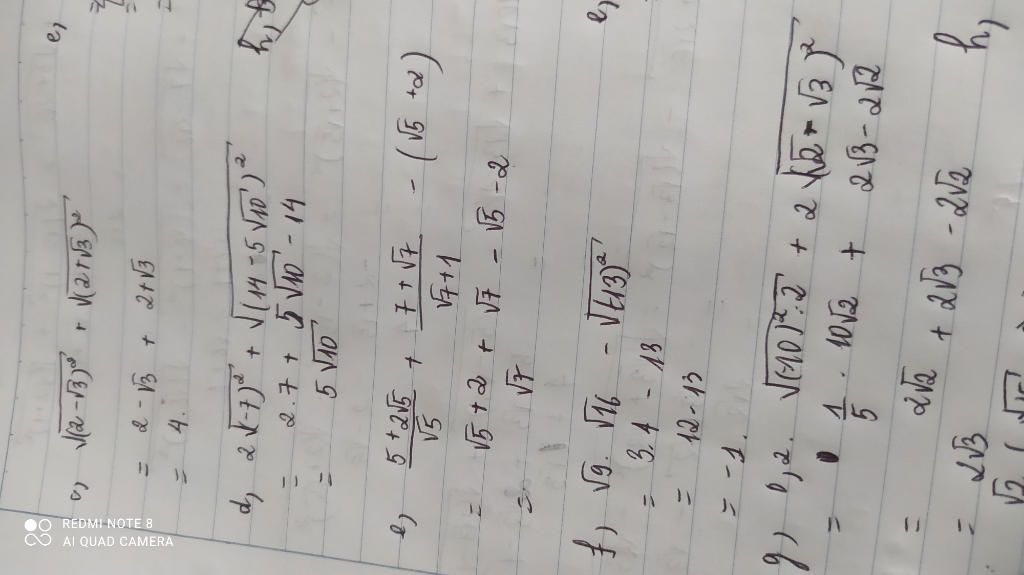 c, √(2-√3)² + √(2+√3)²
= 2-√3 + 2+√3
= 4.
d, 2√(-7)² + √(14-5√10)²
= 2.7 + 5√10 - 14
= 5√10
e, (5+2√5)/√5 + (7+√7)/(√7+1) - (√5 +2)
= √5+2 + √7 - √5 -2
= √7
f) √9. √16 - √(-13)²
= 3.4 - 13
= 12-13
= -1.
g) 0,2. √(-10)².2 + 2√(√2-√3)²
= 1/5 . 10√2 + 2√3-2√2
= 2√2 + 2√3 -2√2
= 2√3
e,
h,
e,
h,
REDMI NOTE 8
AI QUAD CAMERA